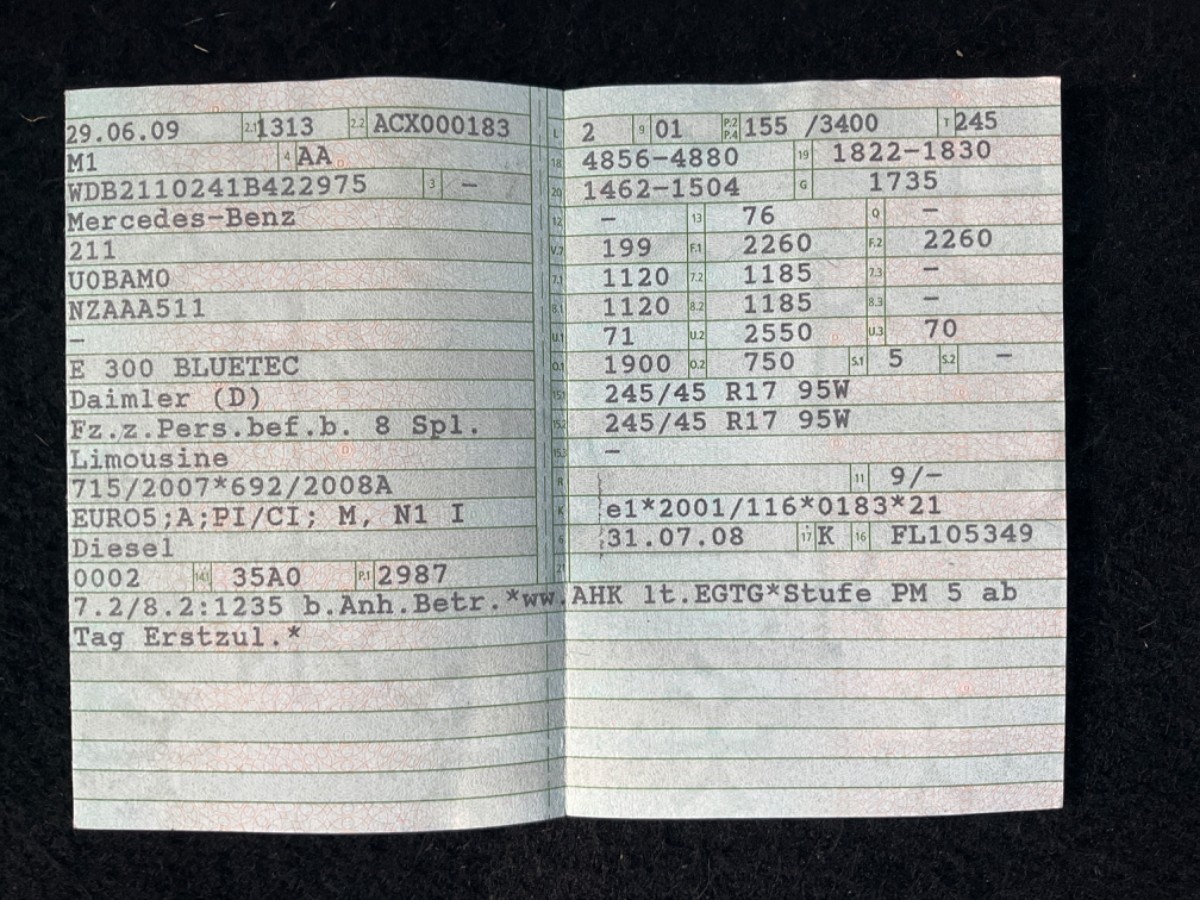 29.06.09 2.1 1313 2.2 ACX000183
M1 4 AA
WDB2110241B422975 3 –
Mercedes-Benz
211
U0BAM0
NZAAA511
–
E 300 BLUETEC
Daimler (D)
Fz.z.Pers.bef.b. 8 Spl.
Limousine
715/2007*692/2008A
EURO5;A;PI/CI; M, N1 I
Diesel
0002 14.1 35A0 P.1 2987
L 2 9 01 P.2 P.4 155 /3400 T 245
18 4856-4880 19 1822-1830
20 1462-1504 G 1735
12 – 13 76 Q –
V.7 199 F.1 2260 F.2 2260
7.1 1120 7.2 1185 7.3 –
8.1 1120 8.2 1185 8.3 –
U.1 71 U.2 2550 U.3 70
O.1 1900 O.2 750 S.1 5 S.2 –
15.1 245/45 R17 95W
15.2 245/45 R17 95W
15.3 –
R 11 9/-
K e1*2001/116*0183*21
6 31.07.08 17 K 16 FL105349
21
7.2/8.2:1235 b.Anh.Betr.*ww.AHK lt.EGTG*Stufe PM 5 ab
Tag Erstzul.*